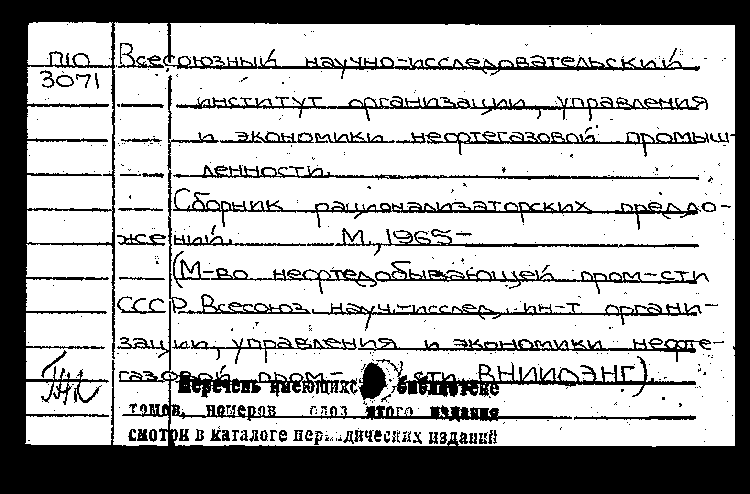 П10 Всесоюзный научно-исследовательский
3071
институт организации, управления
и экономики нефтегазовой промыш-
ленности.
Сборник рационализаторских предло-
жений. М., 1965-
(М-во нефтедобывающей пром-сти
СССР. Всесоюз. науч.-исслед. ин-т органи-
зации, управления и экономики нефте-
газовой пром-сти ВНИИОЭНГ).
Перечень имеющихся библиотеке
томов, номеров этого издания
смотри в каталоге периодических изданий